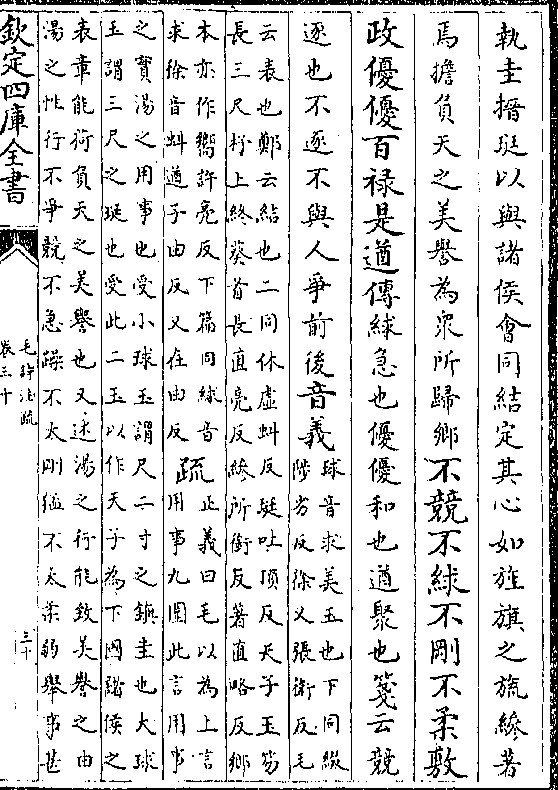 執圭搢珽以與諸侯會同結定其心如旌旗之旒縿著
焉擔負天之美譽為衆所歸鄉不競不絿不剛不柔敷
政優優百祿是遒傳絿急也優優和也遒聚也箋云競
逐也不逐不與人爭前後音義
球音求美玉也下同綴
陟劣反徐又張衛反毛
云表也鄭云結也二同休虛虯反珽吐頂反天子玉笏
長三尺杼上終葵首長直亮反縿所銜反著直略反鄉
本亦作嚮許亮反下篇同絿音
求徐音虯遒子由反又在由反
疏
正義曰毛以為上言
用事九圍此言用事
之實湯之用事也受小球玉謂尺二寸之鎮圭也大球
玉謂三尺之珽也受此二玉以作天子為下國諸侯之
表章能荷負天之美譽也又述湯之行能致美譽之由
湯之性行不爭競不急躁不太剛猛不太柔弱舉事甚
欽定四庫全書
毛詩注疏
卷三十
三十